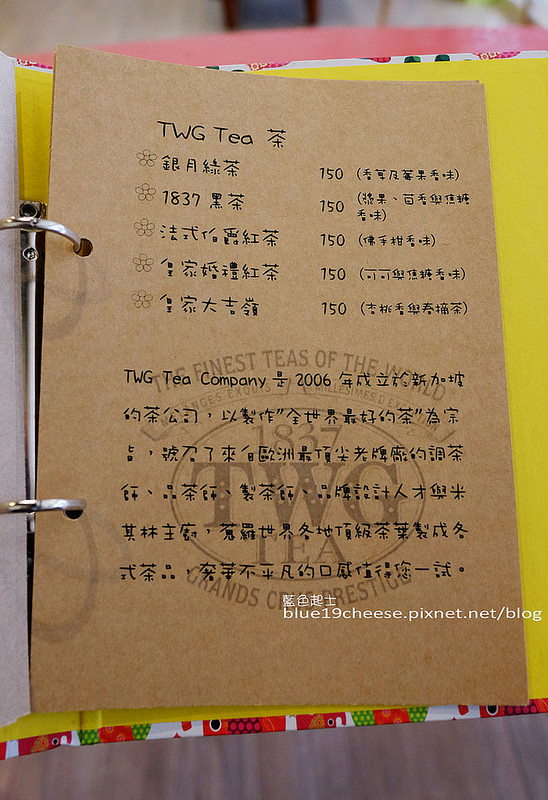 TWG Tea 茶
銀月綠茶 150 (香草及莓果香味)
1837 黑茶 150 (漿果、茴香與焦糖香味)
法式伯爵紅茶 150 (佛手柑香味)
皇家婚禮紅茶 150 (可可與焦糖香味)
皇家大吉嶺 150 (杏桃香與春摘茶)
THE FINEST TEAS OF THE WORLD
TWG Tea Company 是 2006 年成立於新加坡
的茶公司，以製作"全世界最好的茶"為宗
旨，號召了來自歐洲最頂尖老牌廠的調茶
師、品茶師、製茶師、品牌設計人才與米
其林主廚，蒐羅世界各地頂級茶葉製成各
式茶品，奢華不平凡的口感值得您一試。
1837
TWG
TEA
藍色起士
blue19cheese.pixnet.net/blog